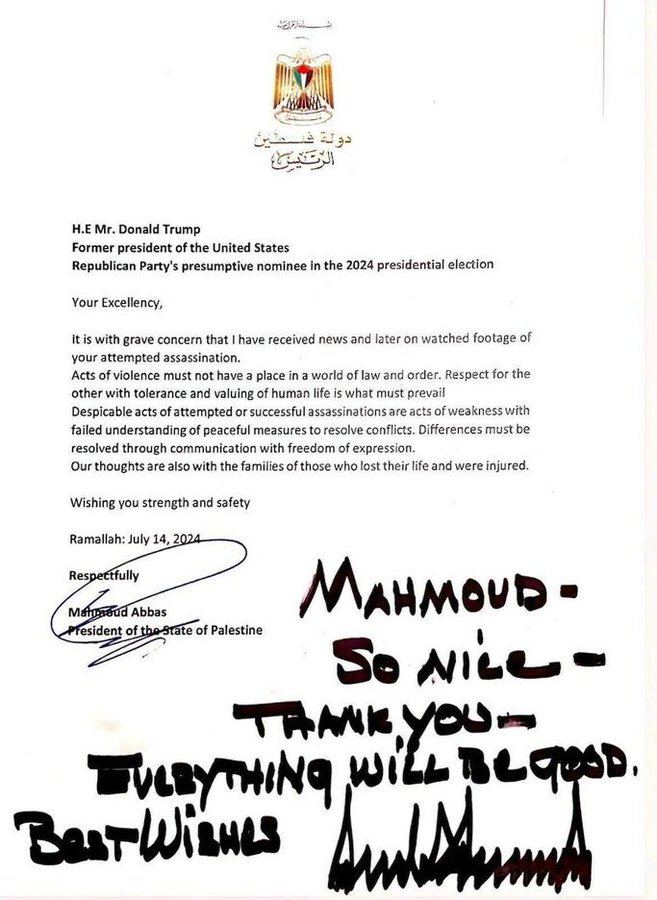 دولة فلسطين
الرئيس
H.E Mr. Donald Trump
Former president of the United States
Republican Party's presumptive nominee in the 2024 presidential election
Your Excellency,
It is with grave concern that I have received news and later on watched footage of
your attempted assassination.
Acts of violence must not have a place in a world of law and order. Respect for the
other with tolerance and valuing of human life is what must prevail
Despicable acts of attempted or successful assassinations are acts of weakness with
failed understanding of peaceful measures to resolve conflicts. Differences must be
resolved through communication with freedom of expression.
Our thoughts are also with the families of those who lost their life and were injured.
Wishing you strength and safety
Ramallah: July 14, 2024
Respectfully
Mahmoud Abbas
President of the State of Palestine
MAHMOUD -
SO NICE -
THANK YOU -
EVERYTHING WILL BE GOOD.
BEST WISHES